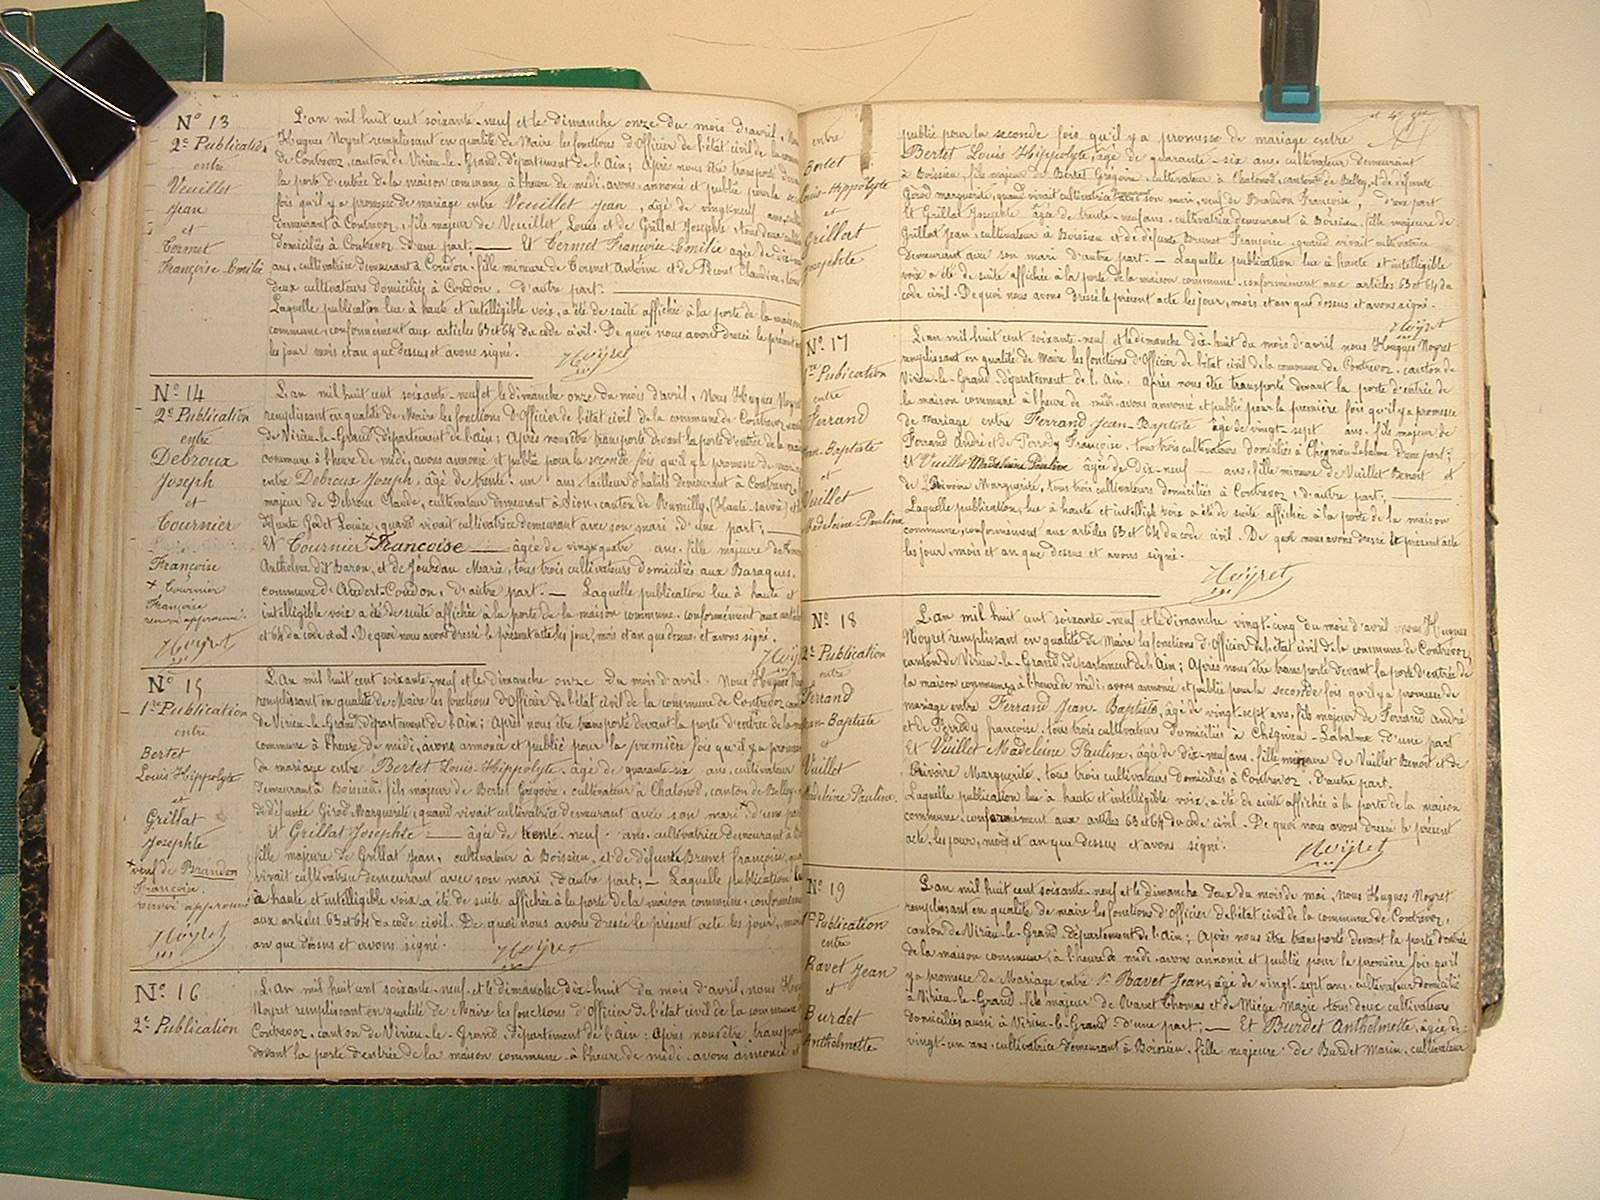 N° 13
2e Publication
entre
Vuillet
Jean
et
Cormet
Françoise Emilie
L'an mil huit cent soixante-neuf et le dimanche onze du mois d'avril, Nous
Hugues Noyret remplissant en qualité de Maire les fonctions d'Officier de l'état civil de la commune
de Contrevoz, canton de Virieu-le-Grand, département de l'Ain; Après nous être transporté devant
la porte d'entrée de la maison commune à l'heure de midi, avons annoncé et publié pour la
fois qu'il y a promesse de mariage entre Vuillet Jean, âgé de vingt-neuf ans,
demeurant à Contrevoz, fils majeur de Vuillet Louis et de Grillat Josephte, tous deux
domiciliés à Contrevoz d'une part; Et Cormet Françoise Emilie agée de
ans, cultivatrice demeurant à Condon, fille mineure de Cormet Antoine et de Claudine, tous
deux cultivateurs domiciliés à Condon. d'autre part.
Laquelle publication lue à haute et intelligible voix, a été de suite affichée à la porte de la maison
commune, conformément aux articles 63 et 64 du code civil. De quoi nous avons dressé le présent
les jour mois et an que dessus et avons signé. Noyret
N° 14
2e Publication
entre
Debroux
Joseph
et
Cournier
Françoise
+ Cournier
Françoise
renvoi approuvé.
Noyret
L'an mil huit cent soixante-neuf et le dimanche onze du mois d'avril, Nous Hugues Noyret
remplissant en qualité de Maire les fonctions d'Officier de l'état civil de la commune de Contrevoz,
de Virieu-le-Grand, département de l'Ain; Après nous être transporté devant la porte d'entrée de la
commune à l'heure de midi, avons annoncé et publié pour la seconde fois qu'il y a promesse de
entre Debroux Joseph, âgé de trente-un ans tailleur d'habits demeurant à Contrevoz,
majeur de Debroux Claude, cultivateur demeurant à Sion, canton de Rumilly, (Haute-Savoie)
défunte Godet Louise, quand vivait cultivatrice demeurant avec son mari d'une part;
Et Cournier + Françoise âgée de vingt-quatre ans, fille majeure de
Anthelme dit Baron, et de Jourdan Marie, tous trois cultivateurs domiciliés aux Baraques,
commune d'Andert-Condon, d'autre part. Laquelle publication lue à haute et
intelligible voix a été de suite affichée à la porte de la maison commune, conformément aux
et 64 du code civil. De quoi nous avons dressé le présent acte les jour, mois et an que dessus et avons signé.
N° 15
1re Publication
entre
Bertet
Louis Hippolyte
et
Grillat
Josephte
+ veuf de Brandon
Françoise.
renvoi approuvé
Noyret
L'an mil huit cent soixante-neuf et le dimanche onze du mois d'avril. Nous Hugues
remplissant en qualité de Maire les fonctions d'Officier de l'état civil de la commune de Contrevoz
de Virieu-le-Grand, département de l'Ain; Après nous être transporté devant la porte d'entrée de la
commune à l'heure de midi, avons annoncé et publié pour la première fois qu'il y a promesse
de mariage entre Bertet Louis-Hippolyte, âgé de quarante-six ans, cultivateur
demeurant à Boissieu, fils majeur de Bertet Grégoire, cultivateur à Chatonod, canton de Belley,
de défunte Girod Marguerite, quand vivait cultivatrice demeurant avec son mari, d'une part
Et Grillat Josephte âgée de trente-neuf ans, cultivatrice demeurant à
fille majeure de Grillat Jean, cultivateur à Boissieu, et de défunte Brunet Françoise,
vivait cultivatrice demeurant avec son mari, d'autre part; Laquelle publication
à haute et intelligible voix, a été de suite affichée à la porte de la maison commune, conformément
aux articles 63 et 64 du code civil. De quoi nous avons dressé le présent acte les jour,
an que dessus et avons signé. Noyret
N° 16
2e Publication
L'an mil huit cent soixante-neuf et le dimanche dix-huit du mois d'avril, nous
Noyret remplissant en qualité de Maire les fonctions d'Officier de l'état civil de la commune
Contrevoz, canton de Virieu-le-Grand, département de l'Ain. Après nous être transporté
devant la porte d'entrée de la maison commune à l'heure de midi, avons annoncé et
entre
Bertet
Louis-Hippolyte
et
Grillat
Josephte
publié pour la seconde fois qu'il y a promesse de mariage entre
Bertet Louis Hippolyte, âgé de quarante-six ans, cultivateur demeurant
à Boissieu, fils majeur de Bertet Grégoire, cultivateur à Chatonod, canton de Belley, et de défunte
Girod Marguerite, quand vivait cultivatrice demeurant avec son mari, veuf de Brandon Françoise, d'une part
Et Grillat Josephte âgée de trente-neuf ans, cultivatrice demeurant à Boissieu, fille majeure de
Grillat Jean, cultivateur à Boissieu et de défunte Brunet Françoise, quand vivait cultivatrice
demeurant avec son mari d'autre part. Laquelle publication lue à haute et intelligible
voix a été de suite affichée à la porte de la maison commune, conformément aux articles 63 et 64 du
code civil. De quoi nous avons dressé le présent acte les jour, mois et an que dessus et avons signé.
Noyret
N° 17
1re Publication
entre
Ferrand
Jean-Baptiste
et
Vuillet
Madeleine-Pauline
L'an mil huit cent soixante-neuf et le dimanche dix-huit du mois d'avril nous Hugues Noyret
remplissant en qualité de Maire les fonctions d'Officier de l'état civil de la commune de Contrevoz, canton de
Virieu-le-Grand, département de l'Ain. Après nous être transporté devant la porte d'entrée de
la maison commune à l'heure de midi, avons annoncé et publié pour la première fois qu'il y a promesse
de mariage entre Ferrand Jean-Baptiste âgé de vingt-sept ans, fils majeur de
Ferrand André et de Perrody Françoise, tous trois cultivateurs domiciliés à Chégnieu-Labalme d'une part;
Et Vuillet Madeleine Pauline âgée de Dix-neuf ans, fille mineure de Vuillet Benoit et
de Brivoire Marguerite, tous trois cultivateurs domiciliés à Contrevoz, d'autre part;
Laquelle publication, lue à haute et intelligible voix a été de suite affichée à la porte de la maison
commune, conformément aux articles 63 et 64 du code civil. De quoi nous avons dressé le présent acte
les jour, mois et an que dessus et avons signé.
Noyret
N° 18
2e Publication
entre
Ferrand
Jean-Baptiste
et
Vuillet
Madeleine-Pauline
L'an mil huit cent soixante-neuf et le dimanche vingt-cinq du mois d'avril nous Hugues
Noyret remplissant en qualité de Maire les fonctions d'Officier de l'état civil de la commune de Contrevoz,
canton de Virieu-le-Grand, département de l'Ain; Après nous être transporté devant la porte d'entrée de
la maison commune, à l'heure de midi, avons annoncé et publié pour la seconde fois qu'il y a promesse de
mariage entre Ferrand Jean-Baptiste, âgé de vingt-sept ans, fils majeur de Ferrand André
et de Perrody françoise, tous trois cultivateurs domiciliés à Chégnieu-Labalme d'une part
Et Vuillet Madeleine Pauline, âgée de dix-neuf ans, fille mineure de Vuillet Benoit et de
Brivoire Marguerite, tous trois cultivateurs domiciliés à Contrevoz, d'autre part.
Laquelle publication lue à haute et intelligible voix, a été de suite affichée à la porte de la maison
commune, conformément aux articles 63 et 64 du code civil. De quoi nous avons dressé le présent
acte, les jour, mois et an que dessus et avons signé. Noyret
N° 19
1re Publication
entre
Ravet Jean
et
Burdet
Anthelmette
L'an mil huit cent soixante-neuf et le dimanche deux du mois de mai, Nous Hugues Noyret
remplissant en qualité de maire les fonctions d'Officier de l'état civil de la commune de Contrevoz,
canton de Virieu-le-Grand, département de l'Ain; Après nous être transporté devant la porte d'entrée
de la maison commune, à l'heure de midi, avons annoncé et publié pour la première fois qu'il
y a promesse de Mariage entre Ravet Jean, âgé de vingt-sept ans, cultivateur domicilié
à Virieu-le-Grand, fils majeur de Ravet Thomas et de Miège Marie, tous deux cultivateurs
domiciliés aussi à Virieu-le-Grand d'une part; Et Burdet Anthelmette, âgée de
vingt-un ans, cultivatrice demeurant à Boissieu, fille majeure de Burdet Marin, cultivateur